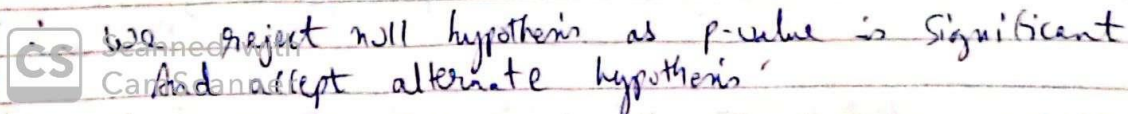 ∴ we reject null hypothesis as p-value is significant
And accept alternate hypothesis.
CS Scanned with
CamScanner